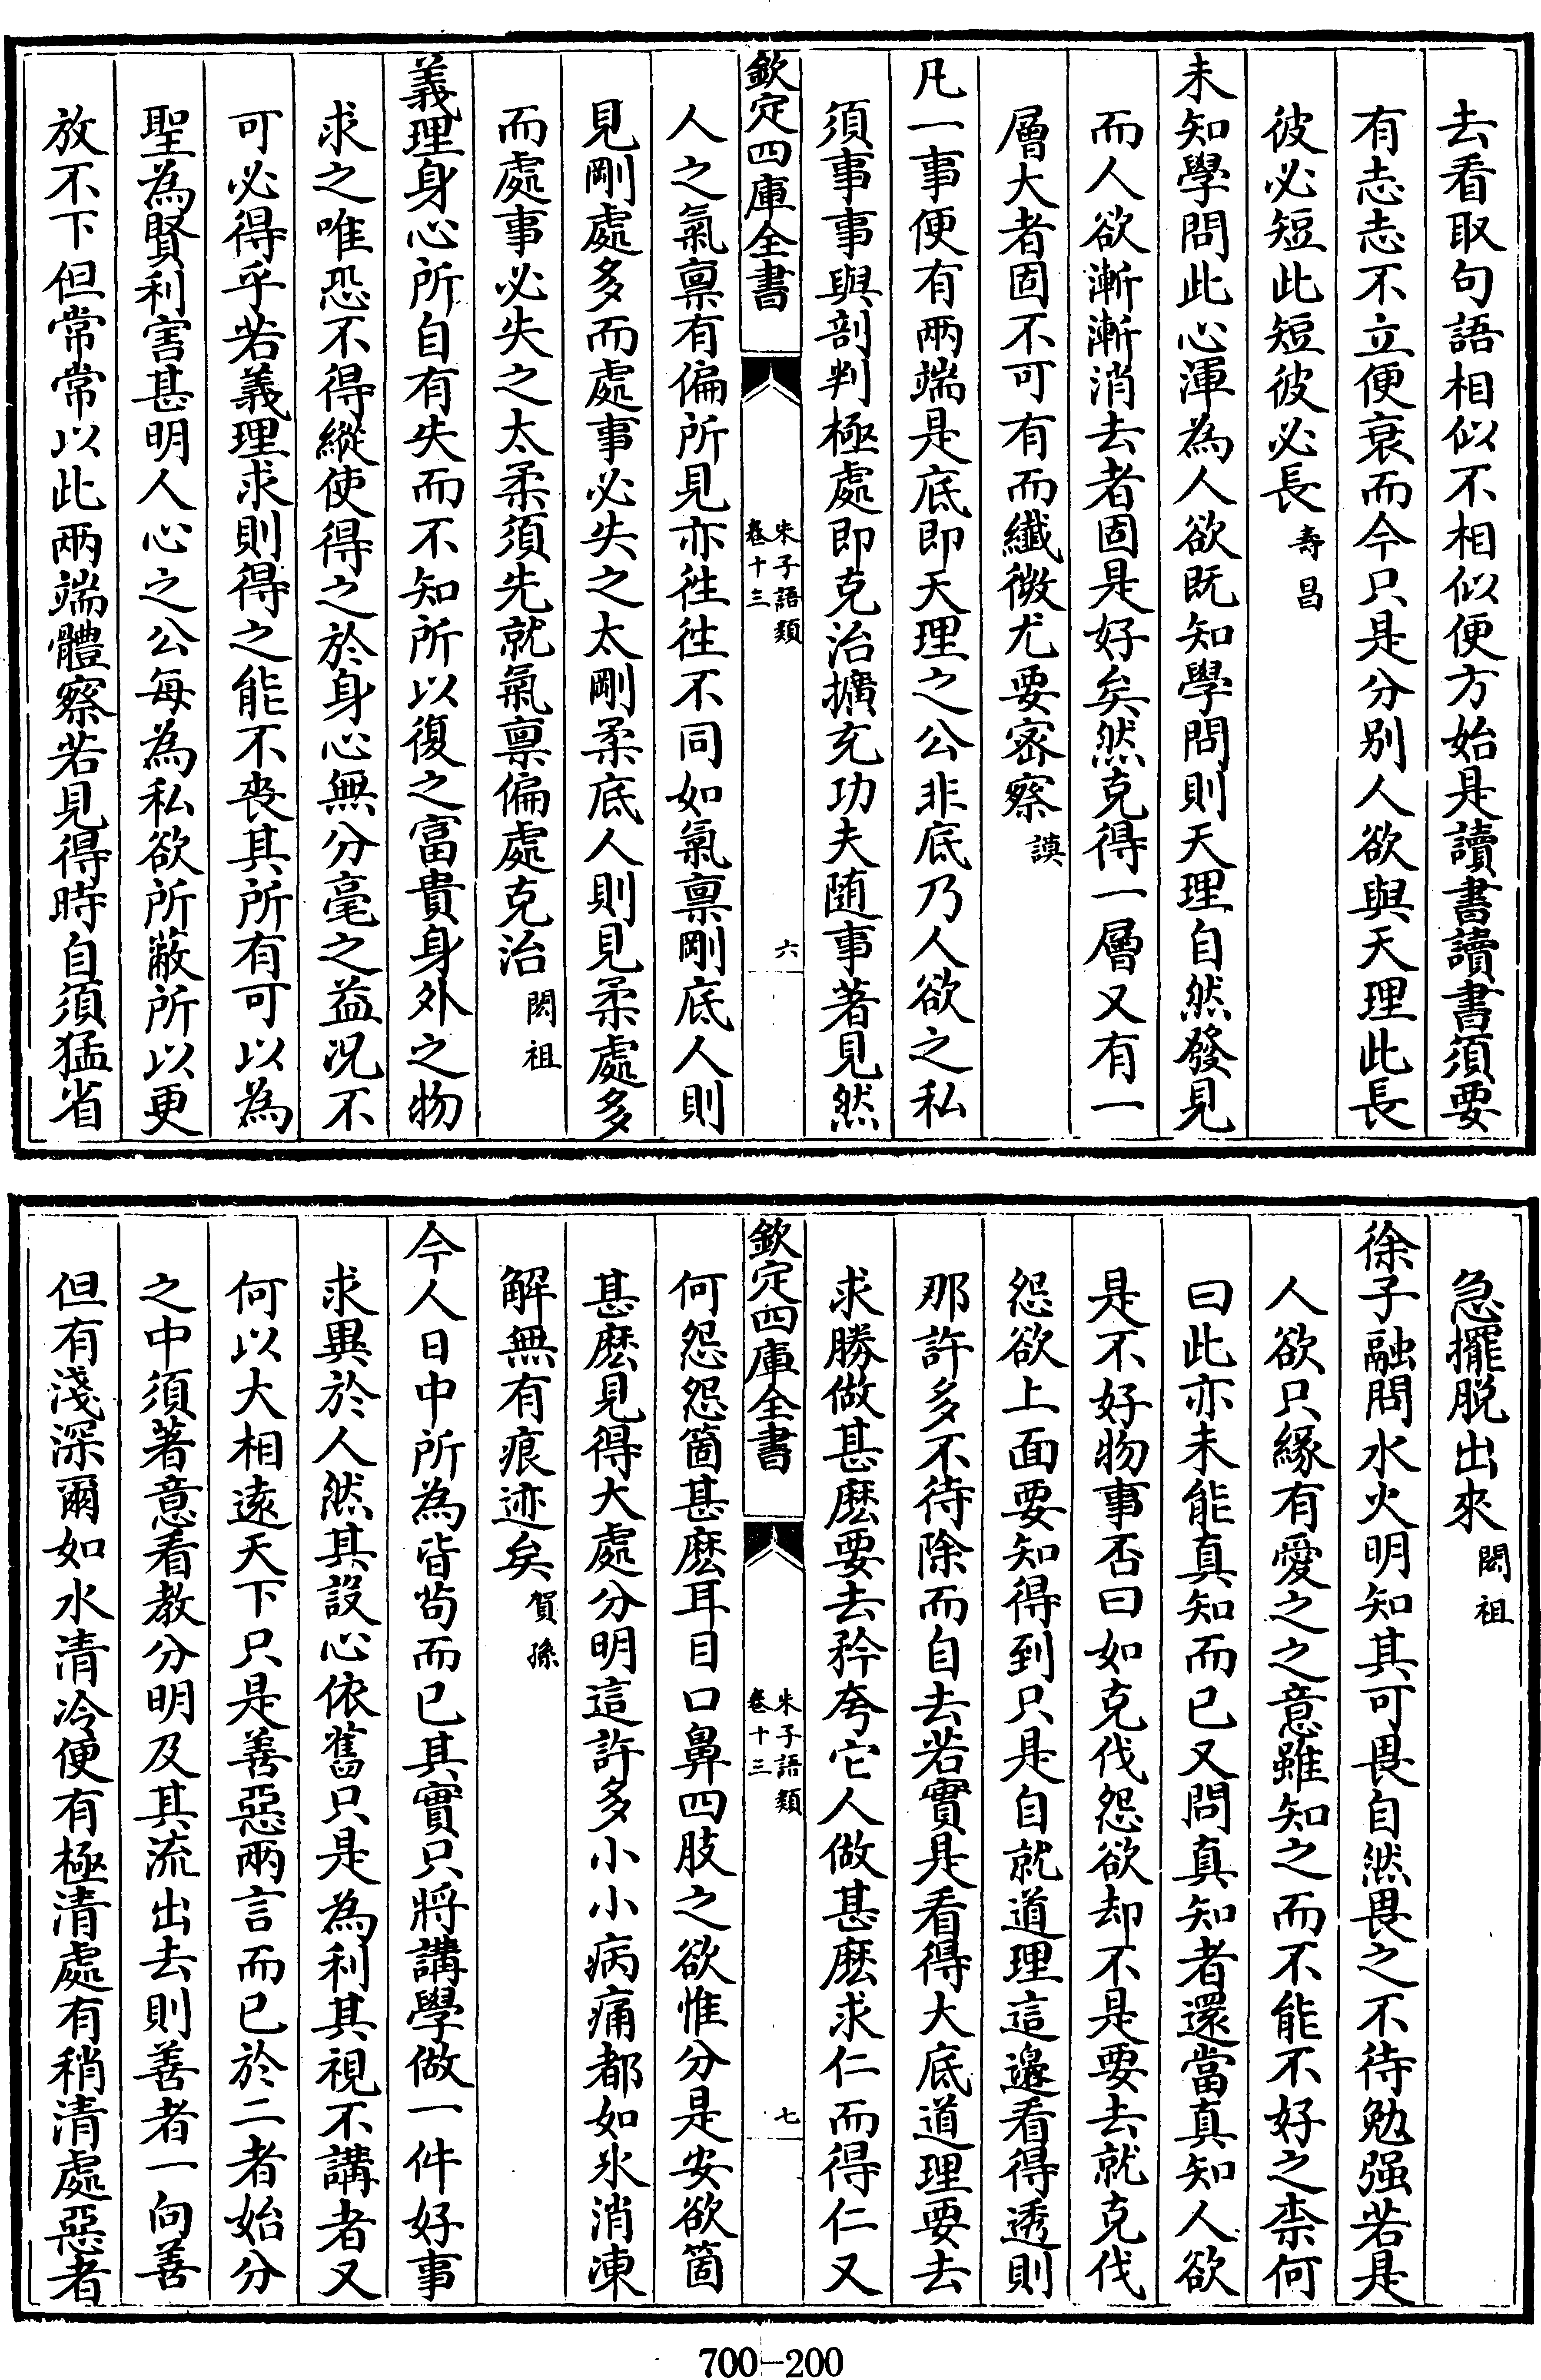 去看取句語相似不相似便方始是讀書讀書須要
有志志不立便衰而今只是分別人欲與天理此長
彼必短此短彼必長壽昌
未知學問此心渾為人欲既知學問則天理自然發見
而人欲漸漸消去者固是好矣然克得一層又有一
層大者固不可有而纎微尤要宻察謨
凡一事便有兩端是底即天理之公非底乃人欲之私
須事事與剖判極處即克治擴充功夫随事著見然
欽定四庫全書
朱子語類
卷十三
六
人之氣禀有偏所見亦徃徃不同如氣禀剛底人則
見剛處多而處事必失之太剛柔底人則見柔處多
而處事必失之太柔須先就氣禀偏處克治閎祖
義理身心所自有失而不知所以復之富貴身外之物
求之唯恐不得縱使得之於身心無分毫之益况不
可必得乎若義理求則得之能不喪其所有可以為
聖為賢利害甚明人心之公每為私欲所蔽所以更
放不下但常常以此兩端體察若見得時自須猛省
急擺脱出來閎祖
徐子融問水火明知其可畏自然畏之不待勉强若是
人欲只緣有愛之之意雖知之而不能不好之柰何
曰此亦未能真知而已又問真知者還當真知人欲
是不好物事否曰如克伐怨欲却不是要去就克伐
怨欲上面要知得到只是自就道理這邉看得透則
那許多不待除而自去若實是看得大底道理要去
求勝做甚麽要去矜夸它人做甚麽求仁而得仁又
欽定四庫全書
朱子語類
卷十三
七
何怨怨箇甚麽耳目口鼻四肢之欲惟分是安欲箇
甚麽見得大處分明這許多小小病痛都如氷消凍
解無有痕迹矣賀孫
今人日中所為皆茍而已其實只將講學做一件好事
求異於人然其設心依舊只是為利其視不講者又
何以大相逺天下只是善惡兩言而已於二者始分
之中須著意看教分明及其流出去則善者一向善
但有淺深爾如水清冷便有極清處有稍清處惡者
700-200